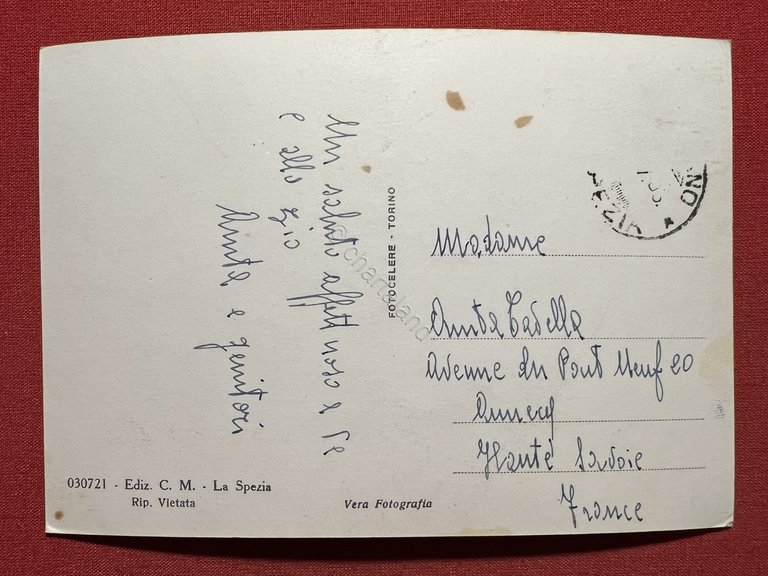 Un abbraccio affettuoso a te
e alla zio
Anita e genitori
FOTOCELERE - TORINO
Madame
Anita Casella
Avenue du Pont Neuf 20
Annecy
Hauté Savoie
France
030721 - Ediz. C. M. - La Spezia
Rip. Vietata
Vera Fotografia